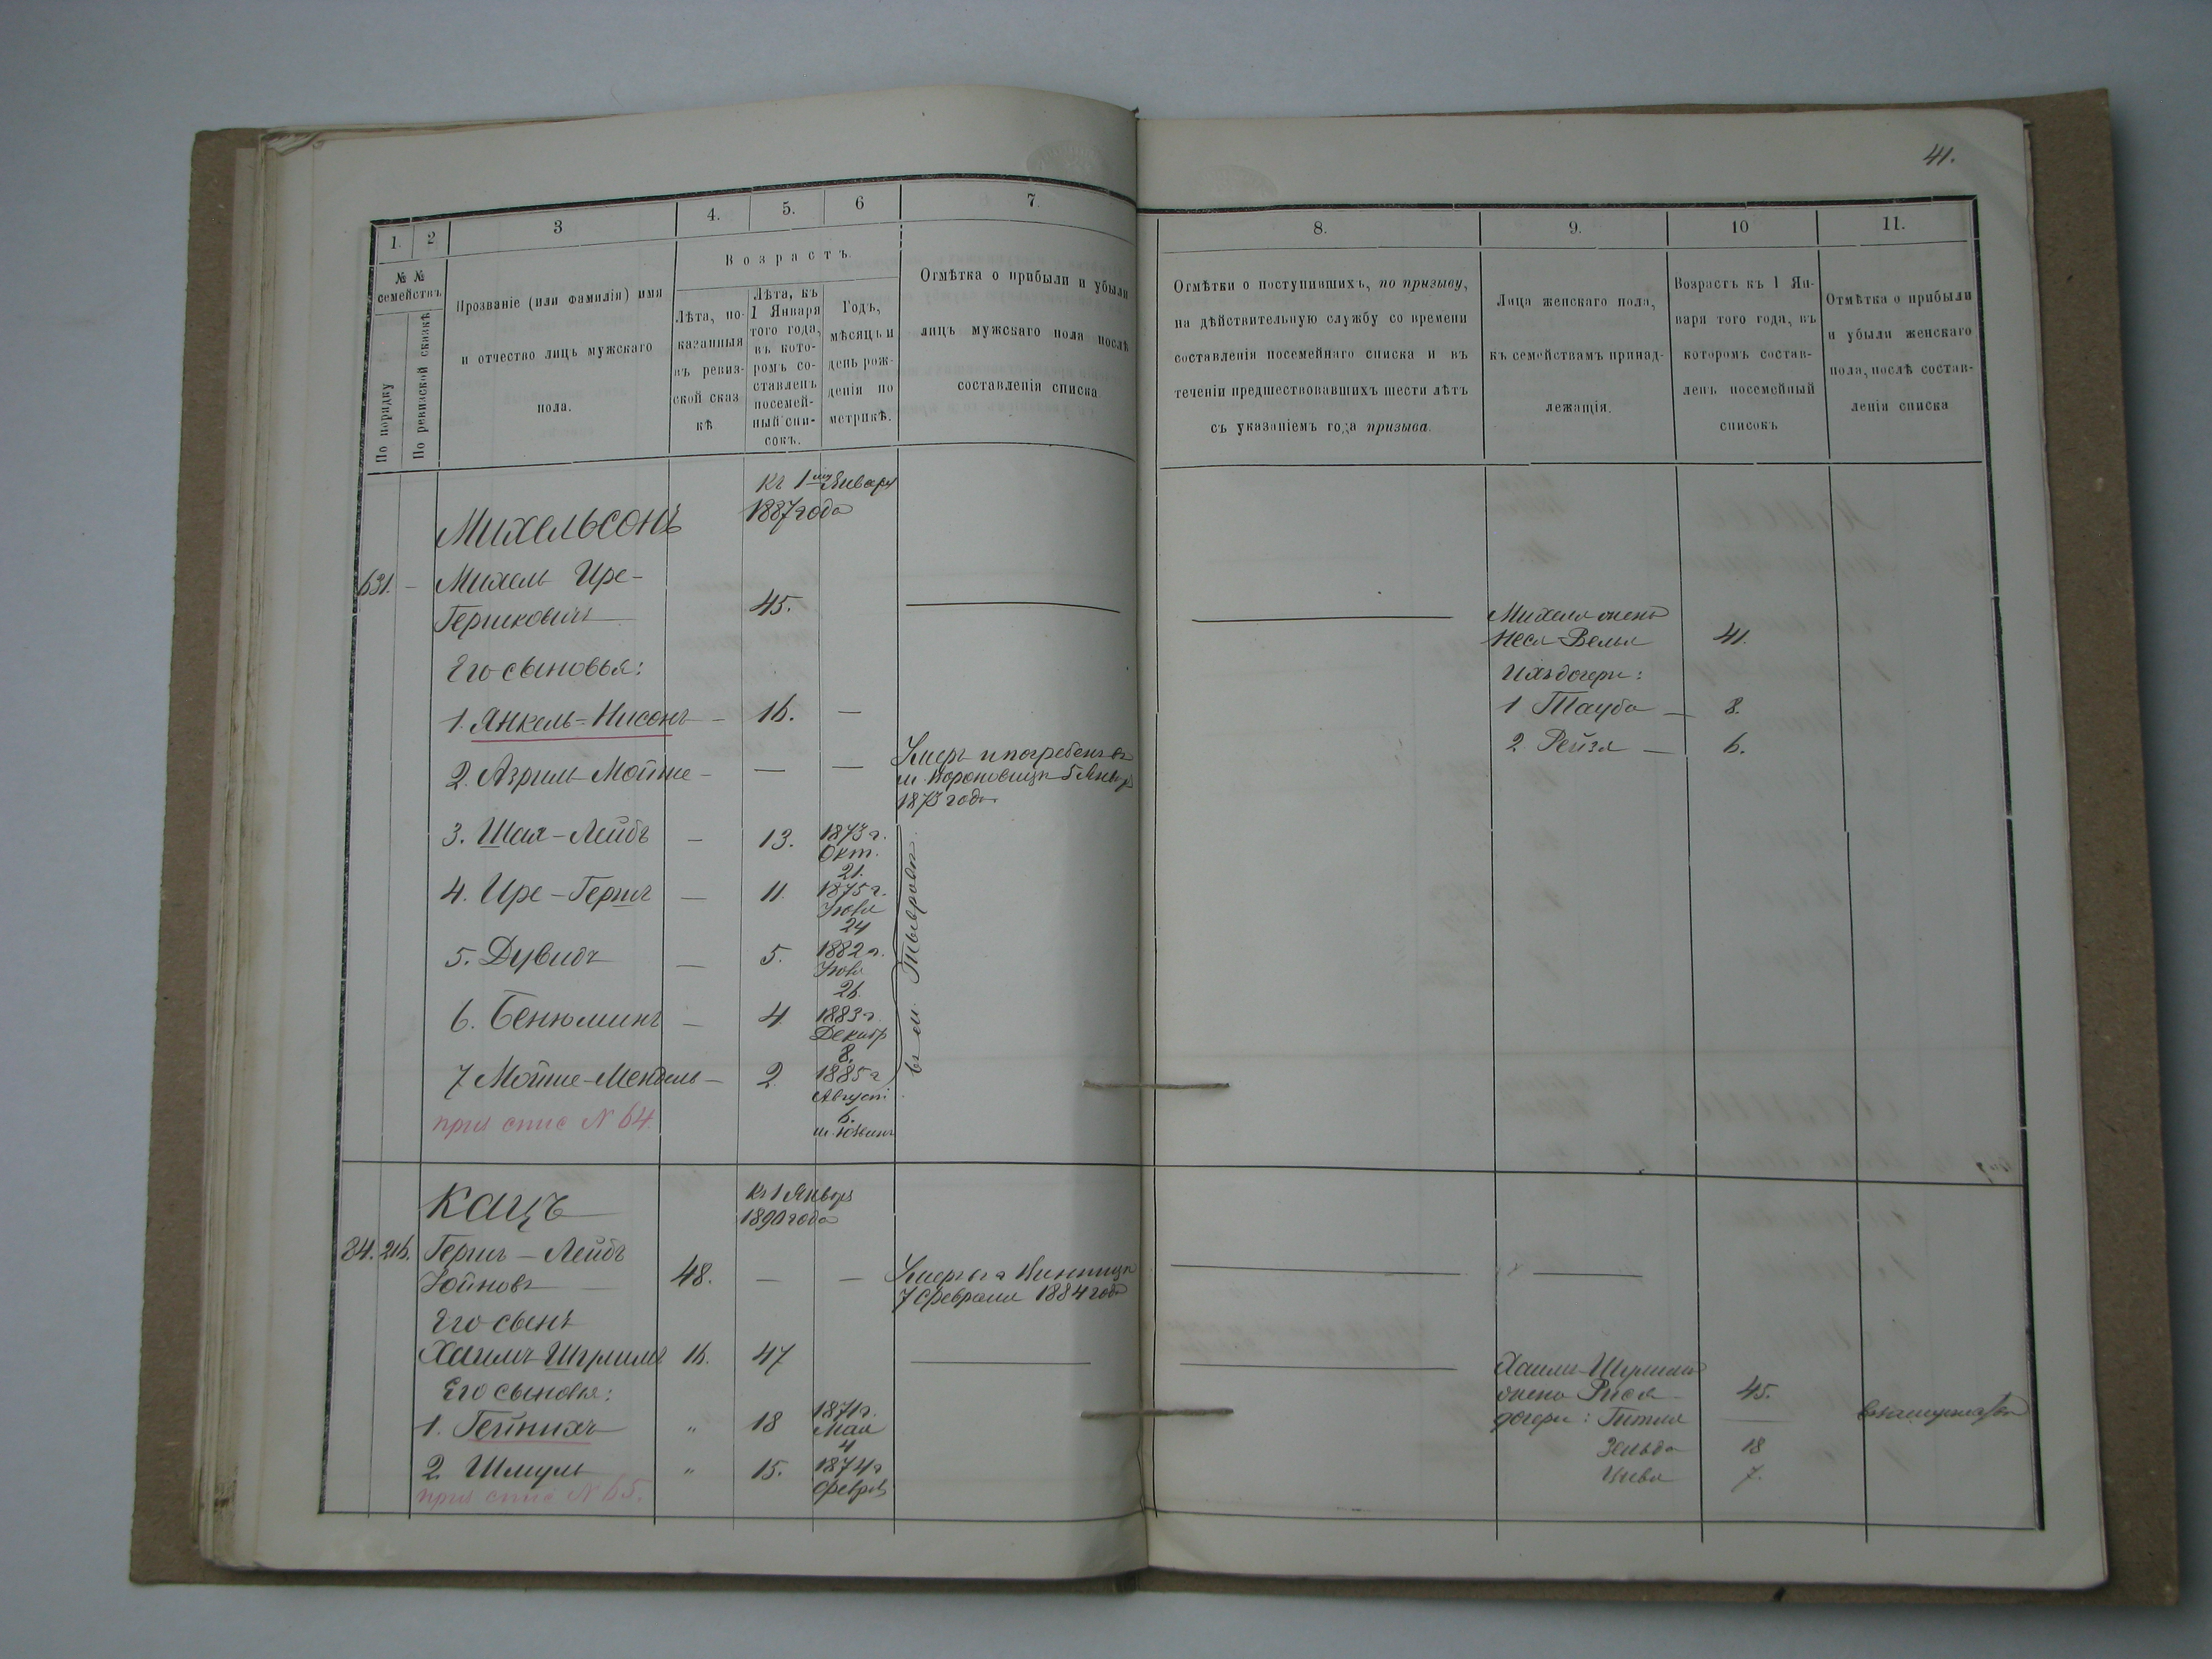 41.
1.
2
3
4.
5.
6
7.
8.
9.
10
11.
№ №
семействъ
По порядку
По ревизской сказкѣ
Прозваніе (или фамилія) имя
и отчество лицъ мужскаго
пола.
Возрастъ.
Лѣта, по-
казанныя
въ ревиз-
ской сказ
кѣ
Лѣта, къ
1 Января
того года,
въ кото-
ромъ со-
ставленъ
посемей-
ный спи-
сокъ.
Годъ,
мѣсяцъ и
день рож-
денія по
метрикѣ.
Отмѣтка о прибыли и убыли
лицъ мужскаго пола послѣ
составленія списка.
Отмѣтки о поступившихъ, по призыву,
на дѣйствительную службу со времени
составленія посемейнаго списка и въ
теченіи предшествовавшихъ шести лѣтъ
съ указаніемъ года призыва.
Лица женскаго пола,
къ семействамъ принад-
лежащія.
Возрастъ къ 1 Ян-
варя того года, въ
которомъ состав-
ленъ посемейный
списокъ
Отмѣтка о прибыли
и убыли женскаго
пола, послѣ состав-
ленія списка
Къ 1 Января
1887 года
Михельсонъ
631. — Михель Ире-
Гершковичъ 45.
Его сыновья:
1. Янкель-Нисонъ — 16. —
2. Азриль-Мойше — — —
Умеръ и погребенъ въ
м. Вороновицѣ 5 Январ
1873 года
3. Шая-Лейбъ — 13. 1873 г.
Окт.
21.
4. Ире-Гершъ — 11. 1875 г.
24
5. Дувидъ — 5. 1882 г.
26.
6. Бенюминъ — 4. 1883 г.
Декабр
8.
7 Мойше-Мендель — 2. 1885 г
Август
6.
въ м. Тывровѣ
приз спис № 64.
Михеля жена
Неся-Вельа 41.
Ихъ дочери:
1 Тауба — 8.
2 Рейзя — 6.
Кацъ
Къ 1 Январ
1890 года
84. 216. Гершъ-Лейбъ
48. — —
Умеръ въ г Винницѣ
7 Февраля 1884 года
Его сынъ
Хаимъ-Шулимъ 16. 47
Его сыновья:
1. Гейнихъ " 18 1871 г.
Мая
4
2 Шмуль " 15. 1874 г
Февраль
приз спис № 65.
Хаима-Шулима
жена Рися 45.
дочери: Гитля —
Зельда 18
Цивья 7.